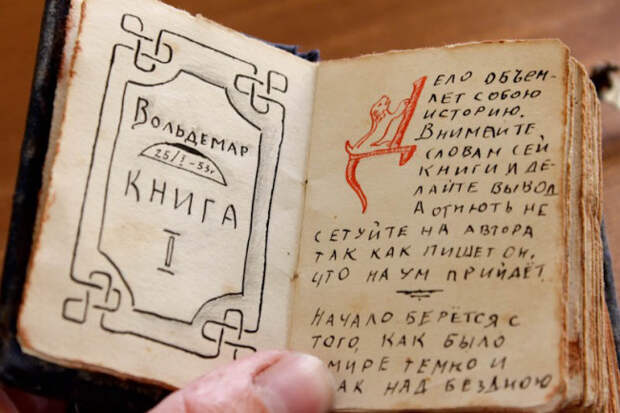 Вольдемар
25/I-33г
КНИГА
II
ДЕЛО ОБЪЕМ-
ЛЕТ СОБОЮ
ИСТОРИЮ.
ВНИМАЙТЕ
СЛОВАМ СЕЙ
КНИГИ И ДЕ-
ЛАЙТЕ ВЫВОД
А ОТНЮТЬ НЕ
СЕТУЙТЕ НА АВТОРА
ТАК КАК ПИШЕТ ОН,
ЧТО НА УМ ПРИЙДЁТ.
НАЧАЛО БЕРЁТСЯ С
ТОГО, КАК БЫЛО
МИРЕ ТЕМНО И
АК НАД БЕЗДНОЮ